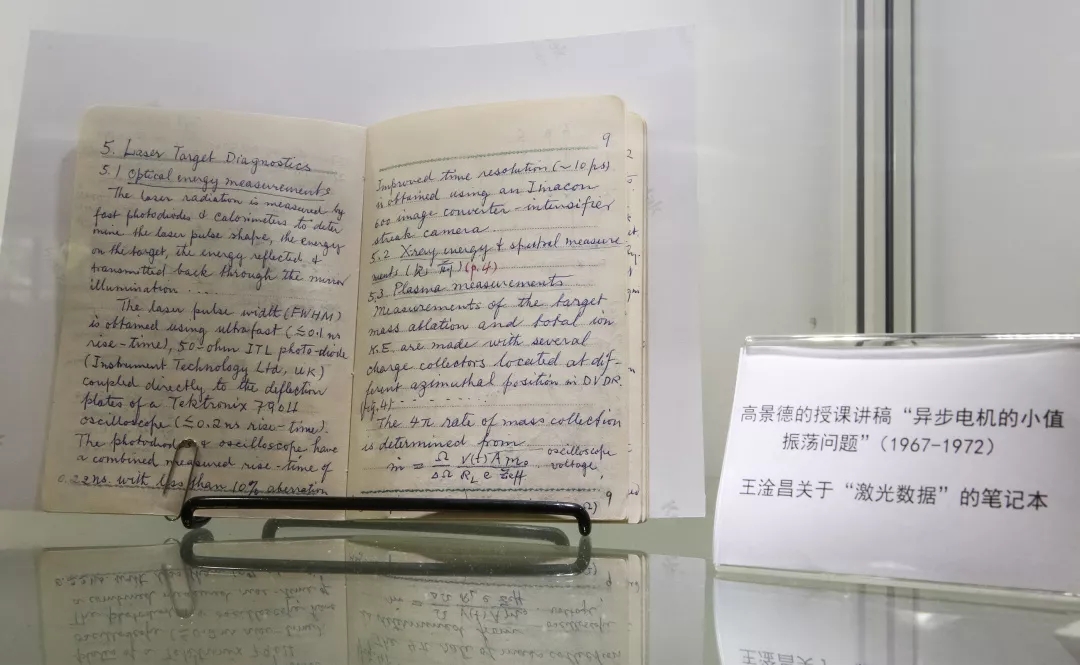 5. Laser Target Diagnostics
5.1 Optical energy measurements
The laser radiation is measured by
fast photodiodes & calorimeters to deter
mine the laser pulse shape, the energy
on the target, the energy reflected &
transmitted back through the mirror
illumination ....
The laser pulse width (FWHM)
is obtained using ultrafast (≦0.1 ns
rise-time), 50-ohm ITL photo-diode
(Instrument Technology Ltd, UK)
coupled directly to the deflection
plates of a Tektronix
oscilloscope (≦0.2 ns rise-time).
The photodiode & oscilloscope have
a combined measured rise-time of
ns with less than 10% aberration
9
Improved time resolution (~10 ps)
is obtained using an Imacon
600 image converter-intensifier
streak camera
5.2 Xray energy & spectral measure
ments (p.4)
5.3 Plasma measurements
Measurements of the target
mass ablation and total ion
K.E. are made with several
charge collectors located at dif-
ferent azimuthal position in DVDR
(fig.4)
The 4π rate of mass collection
is determined from
oscilloscope
ṁ = Ω/ΔΩ V(t)/R_L A m₀/e Z̄eff voltage
9
高景德的授课讲稿“异步电机的小值
振荡问题”(1967-1972)
王淦昌关于“激光数据”的笔记本